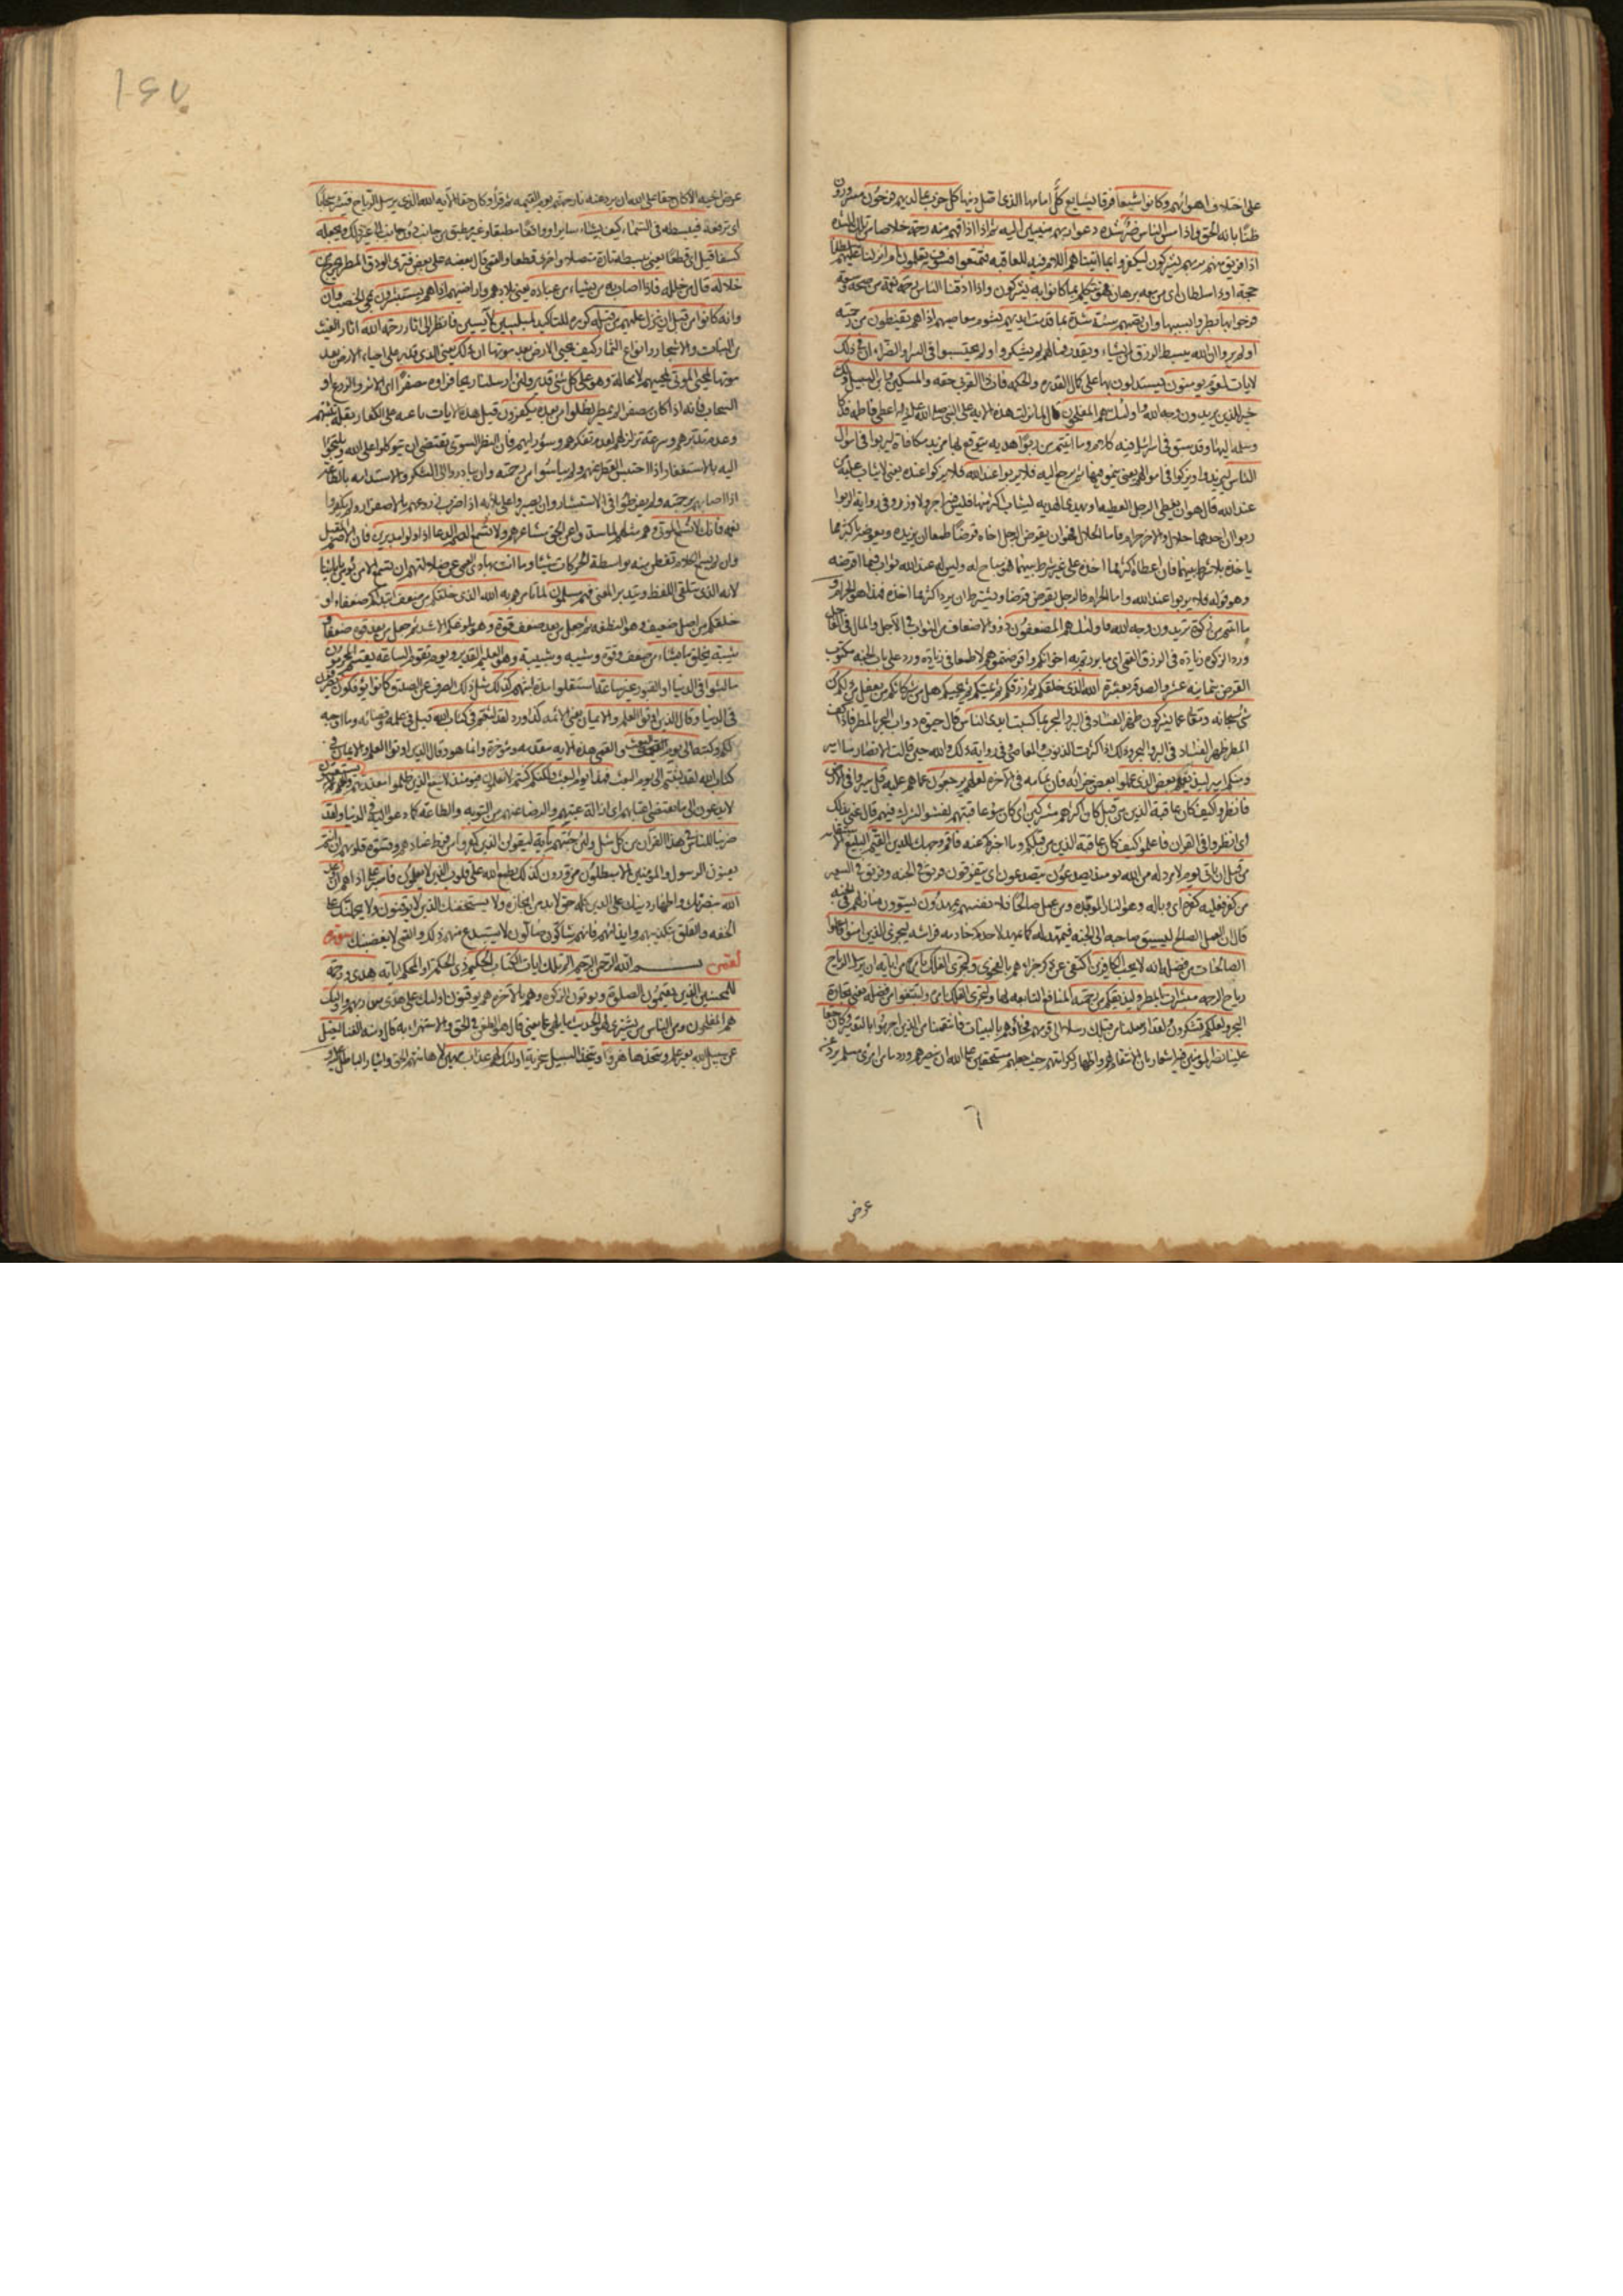 على اختلاف اهوائهم وكانوا شيعا فرقا يشايع كل امامها الذى اضل دينها كل حزب بما لديهم فرحون مسرورون
ظنا بانه الحق واذا مس الناس ضر شدة دعوا ربهم منيبين اليه ثم اذا اذاقهم منه رحمة خلاصا من تلك الشدة
اذا فريق منهم بربهم يشركون ليكفروا بما اتيناهم اللام فيه للعاقبة فتمتعوا فسوف تعلمون ام انزلنا عليهم سلطانا
حجة او ذا سلطان اى من معه برهان فهو يتكلم بما كانوا به يشركون واذا اذقنا الناس رحمة نعمة من صحة وسعة
فرحوا بها بطروا بسببها وان تصبهم سيئة شدة بما قدمت ايديهم بشوم معاصيهم اذا هم يقنطون من رحمته
اولم يروا ان الله يبسط الرزق لمن يشاء ويقدر فما لهم لم يشكروا ولم يحتسبوا فى السراء والضراء ان فى ذلك
لايات لقوم يومنون فيستدلون بها على كمال القدرة والحكمة فات ذا القربى حقه والمسكين وابن السبيل ذلك
خير للذين يريدون وجه الله واولئك هم المفلحون قال لما نزلت هذه الاية على النبى صلى الله عليه واله اعطى فاطمة فدكا
وسلمه اليها وقد سبق فى اسرائيل فيه كلام وما اتيتم من ربوا هدية يتوقع بها مزيد مكافاة ليربوا فى اموال
الناس ليزيد ويزكوا فى اموالهم يعنى ينمو فيها ثم يرجع اليه فلا يربوا عند الله فلا يزكوا عنده يعنى لا يثاب عليه من
عند الله قال هو ان يعطى الرجل العطية او يهدى الهدية ليثاب اكثر منها فليس فيه اجر ولا وزر وفى رواية الربوا
ربوا ان احدهما حلال والاخر حرام فاما الحلال فهو ان يقرض الرجل اخاه قرضا طمعا ان يزيده ويعوضه باكثر مما
ياخذه بلا شرط بينهما فان اعطاه اكثر مما اخذه على غير شرط بينهما فهو مباح له وليس له عند الله ثواب فيما اقرضه
وهو قوله فلا يربوا عند الله واما الحرام فالرجل يقرض قرضا ويشترط ان يرد اكثر مما اخذه فهذا هو الحرام و
ما اتيتم من زكوة تريدون وجه الله فاولئك هم المضعفون ذوو الاضعاف من الثواب فى الاجل والمال فى العاجل
ورد الزكوة زيادة فى الرزق القمى اى ما بررتم به اخوانكم واقرضتموهم لا طمعا فى زيادة ورد على باب الجنة مكتوب
القرض بثمانية عشر والصدقة بعشرة الله الذى خلقكم ثم رزقكم ثم يميتكم ثم يحييكم هل من شركائكم من يفعل من ذلكم من
شئ سبحانه وتعالى عما يشركون ظهر الفساد فى البر والبحر بما كسبت ايدى الناس قال حيوة دواب البحر بالمطر فاذا كف
المطر ظهر الفساد فى البر والبحر وذلك اذا كثرت الذنوب والمعاصى وفى رواية ذلك والله حين قالت الانصار منا امير
ومنكم امير ليذيقهم بعض الذى عملوا بعض جزائه فان تمامه فى الاخرة لعلهم يرجعون عما هم عليه قل سيروا فى الارض
فانظروا كيف كان عاقبة الذين من قبل كان اكثرهم مشركين اى كان سوء عاقبتهم لفشو الشرك فيهم قال عنى بذلك
اى انظروا فى القران فاعلموا كيف كان عاقبة الذين من قبلكم وما اخبركم عنه فاقم وجهك للدين القيم البليغ الاستقامة
من قبل ان ياتى يوم لا مرد له من الله يومئذ يصدعون يتصدعون اى يتفرقون فريق فى الجنة وفريق فى السعير
من كفر فعليه كفره اى وباله وهو النار الموبدة ومن عمل صالحا فلانفسهم يمهدون يسوون منازلهم فى الجنة
قال ان العمل الصالح ليسبق صاحبه الى الجنة فيمهد له كما يمهد لاحدكم خادمه فراشه ليجزى الذين امنوا وعملوا
الصالحات من فضله انه لا يحب الكافرين اكتفى عن ذكر جزائهم بالفحوى ولتجرى الفلك بامره ومن اياته ان يرسل الرياح
رياح الرحمة مبشرات بالمطر وليذيقكم من رحمته المنافع التابعة لها ولتجرى الفلك بامره ولتبتغوا من فضله يعنى تجارة
البحر ولعلكم تشكرون ولقد ارسلنا من قبلك رسلا الى قومهم فجاؤهم بالبينات فانتقمنا من الذين اجرموا بالتدمير وكان حقا
علينا نصر المومنين فيه اشعار بان الانتقام لهم واظهار لكرامتهم حيث جعلهم مستحقين على الله ان ينصرهم ورد ما من امرئ مسلم يرد عن
عرض
عرض اخيه الا كان حقا على الله ان يرد عنه نار جهنم يوم القيمة ثم قرأ وكان حقا الاية الله الذى يرسل الرياح فتثير سحابا
اى ترفعه فيبسطه فى السماء كيف يشاء سايرا وواقفا مطبقا وغير مطبق من جانب دون جانب الى غير ذلك ويجعله
كسفا قيل اى قطعا يعنى يبسطه تارة متصلا واخرى قطعا والقمى قال بعضه على بعض فترى الودق المطر يخرج من
خلاله قال من خلله فاذا اصاب به من يشاء من عباده يعنى بلادهم واراضيهم اذا هم يستبشرون بمجئ الخصب وان
وانه كانوا من قبل ان ينزل عليهم من قبله كرره للتاكيد لمبلسين لايسين فانظر الى اثار رحمة الله اثار الغيث
من النبات والاشجار وانواع الثمار كيف يحيى الارض بعد موتها ان ذلك يعنى الذى قدر على احياء الارض بعد
موتها لمحيى الموتى لمحييهم لا محالة وهو على كل شئ قدير ولئن ارسلنا ريحا فراوه مصفرا اى الاثر والزرع او
السحاب فانه اذا كان مصفرا لم يمطر لظلوا من بعده يكفرون قيل هذه الايات ناعية على الكفار بقلة تثبتهم
وعدم تدبرهم وسرعة تزلزلهم لعدم تفكرهم وسوء رايهم فان النظر السوى يقتضى ان يتوكلوا على الله ويلتجئوا
اليه بالاستغفار اذا احتبس القطر عنهم ولم يياسوا من رحمته وان يبادروا الى الشكر والاستدامة بالطاعة
اذا اصابهم برحمته ولم يفرطوا فى الاستبشار وان يصبروا على بلائه اذا ضرب زروعهم بالاصفرار ولم يكفروا
نعمه فانك لا تسمع الموتى وهم مثلهم لما سدوا عن الحق مشاعرهم ولا تسمع الصم الدعاء اذا ولوا مدبرين فان الاصم المقبل
وان لم يسمع الكلام تفطن منه بواسطة الحركات شيئا وما انت بهادى العمى عن ضلالتهم ان تسمع الا من يؤمن باياتنا
لانه الذى يتلقى اللفظ ويتدبر المعنى فهم مسلمون لما تامرهم به الله الذى خلقكم من ضعف ابتداكم ضعفاء او
خلقكم من اصل ضعيف وهو النطفة ثم جعل من بعد ضعف قوة وهو بلوغكم الاشد ثم جعل من بعد قوة ضعفا و
شيبة يخلق ما يشاء من ضعف وقوة وشيبة وشبيبة وهو العليم القدير ويوم تقوم الساعة يقسم المجرمون
ما لبثوا فى الدنيا او القبور غير ساعة استقلوا مدة لبثهم كذلك مثل ذلك الصرف عن الصدق كانوا يؤفكون يصرفون
فى الدنيا وقال الذين اوتوا العلم والايمان يعنى الائمة كذا ورد لقد لبثتم فى كتاب الله قيل فى علمه وقضائه وما اوجبه
لكم وكتبه الى يوم البعث والقمى هذه الاية مقدمة ومؤخرة وانما هو وقال الذين اوتوا العلم والايمان فى
كتاب الله لقد لبثتم الى يوم البعث فهذا يوم البعث ولكنكم كنتم لا تعلمون فيومئذ لا ينفع الذين ظلموا معذرتهم ولا هم يستعتبون
لا يدعون الى ما يقتضى اعتابهم اى ازالة عتبهم والرضا عنهم من التوبة والطاعة كما دعوا اليه فى الدنيا ولقد
ضربنا للناس فى هذا القران من كل مثل ولئن جئتهم باية ليقولن الذين كفروا من فرط عنادهم وقسوة قلوبهم ان انتم
يعنون الرسول والمومنين الا مبطلون مزورون كذلك يطبع الله على قلوب الذين لا يعلمون فاصبر على اذاهم ان وعد
الله بنصرتك واظهار دينك على الدين كله حق لا بد من انجازه ولا يستخفنك الذين لا يوقنون ولا يحملنك على
الخفة والقلق بتكذيبهم وايذائهم فانهم شاكون ضالون لا يستبدع منهم ذلك والقمى لا يغضبنك سورة
لقمن بسم الله الرحمن الرحيم الم تلك ايات الكتاب الحكيم ذى الحكم او المحكم اياته هدى ورحمة
للمحسنين الذين يقيمون الصلوة ويوتون الزكوة وهم بالاخرة هم يوقنون اولئك على هدى من ربهم واولئك
هم المفلحون ومن الناس من يشترى لهو الحديث ما يلهى عما يعنى قال هو الطعن فى الحق والاستهزاء به قال ومنه الغنا ليضل
عن سبيل الله بغير علم ويتخذها هزوا ويتخذ السبيل سخرية اولئك لهم عذاب مهين لاهانتهم الحق وايثار الباطل عليه و